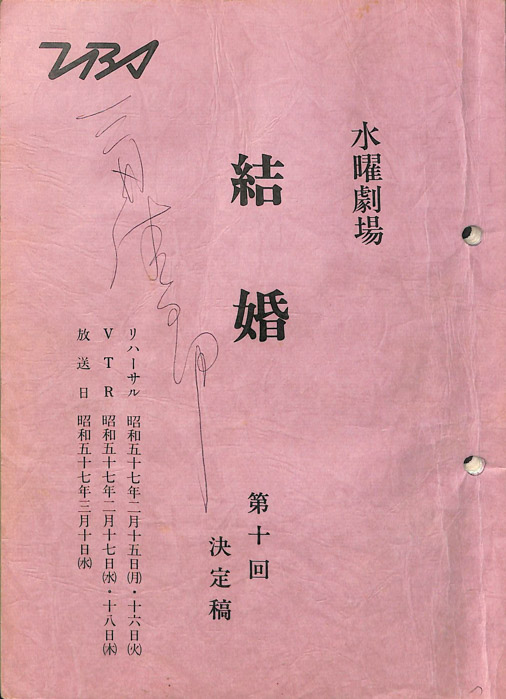 TBS
水曜劇場
結婚
第十回
決定稿
リハーサル 昭和五十七年二月十五日㈪・十六日㈫
VTR 昭和五十七年二月十七日㈬・十八日㈭
放送日 昭和五十七年三月十日㈬